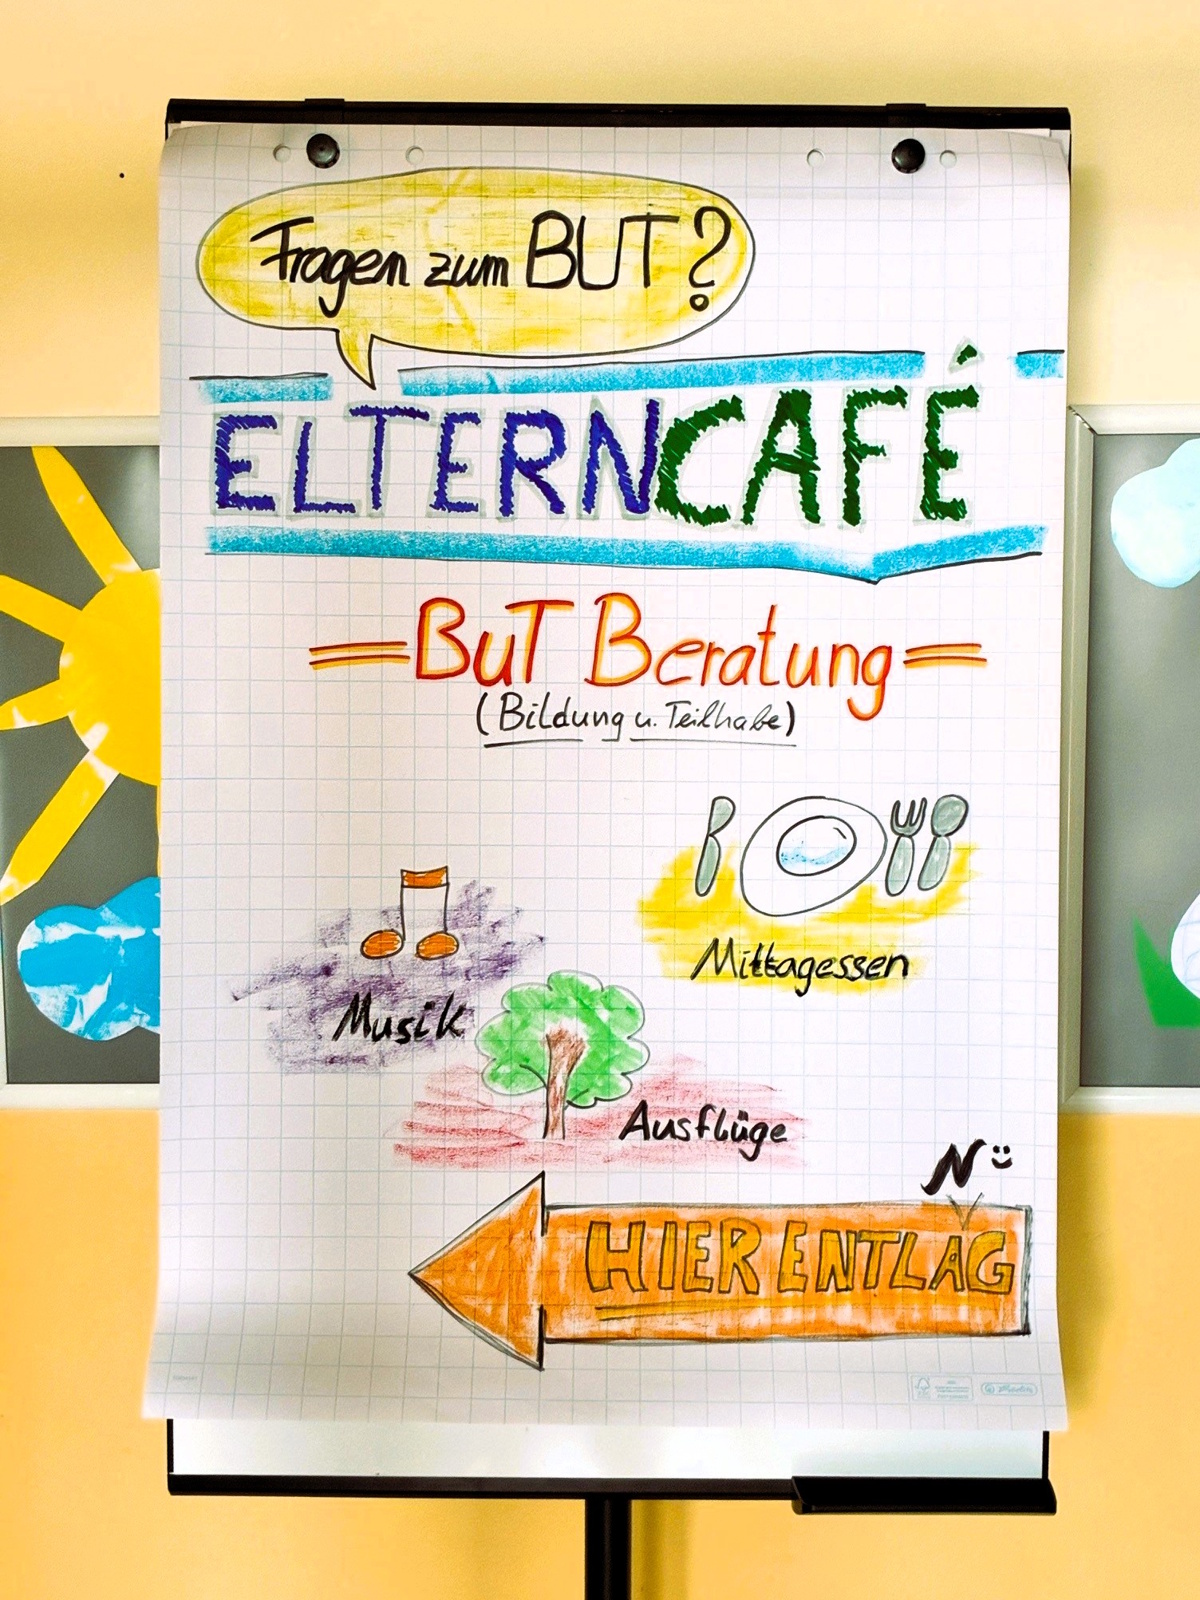 Fragen zum BUT?
ELTERNCAFÉ
BuT Beratung
(Bildung u. Teilhabe)
Mittagessen
Musik
Ausflüge
N
HIER ENTLAG